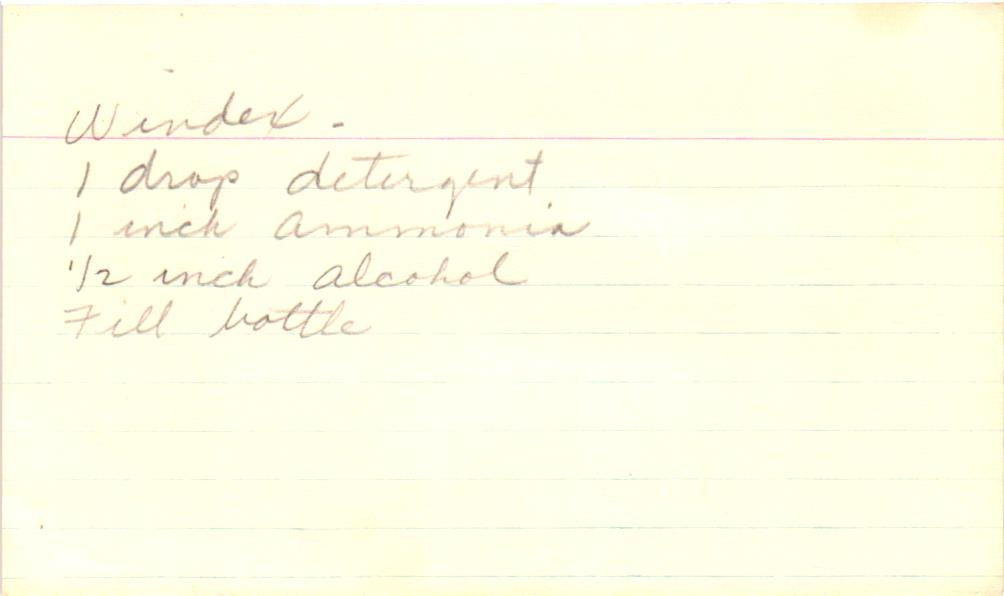 Windex -
1 drop detergent
1 inch ammonia
1/2 inch alcohol
Fill bottle